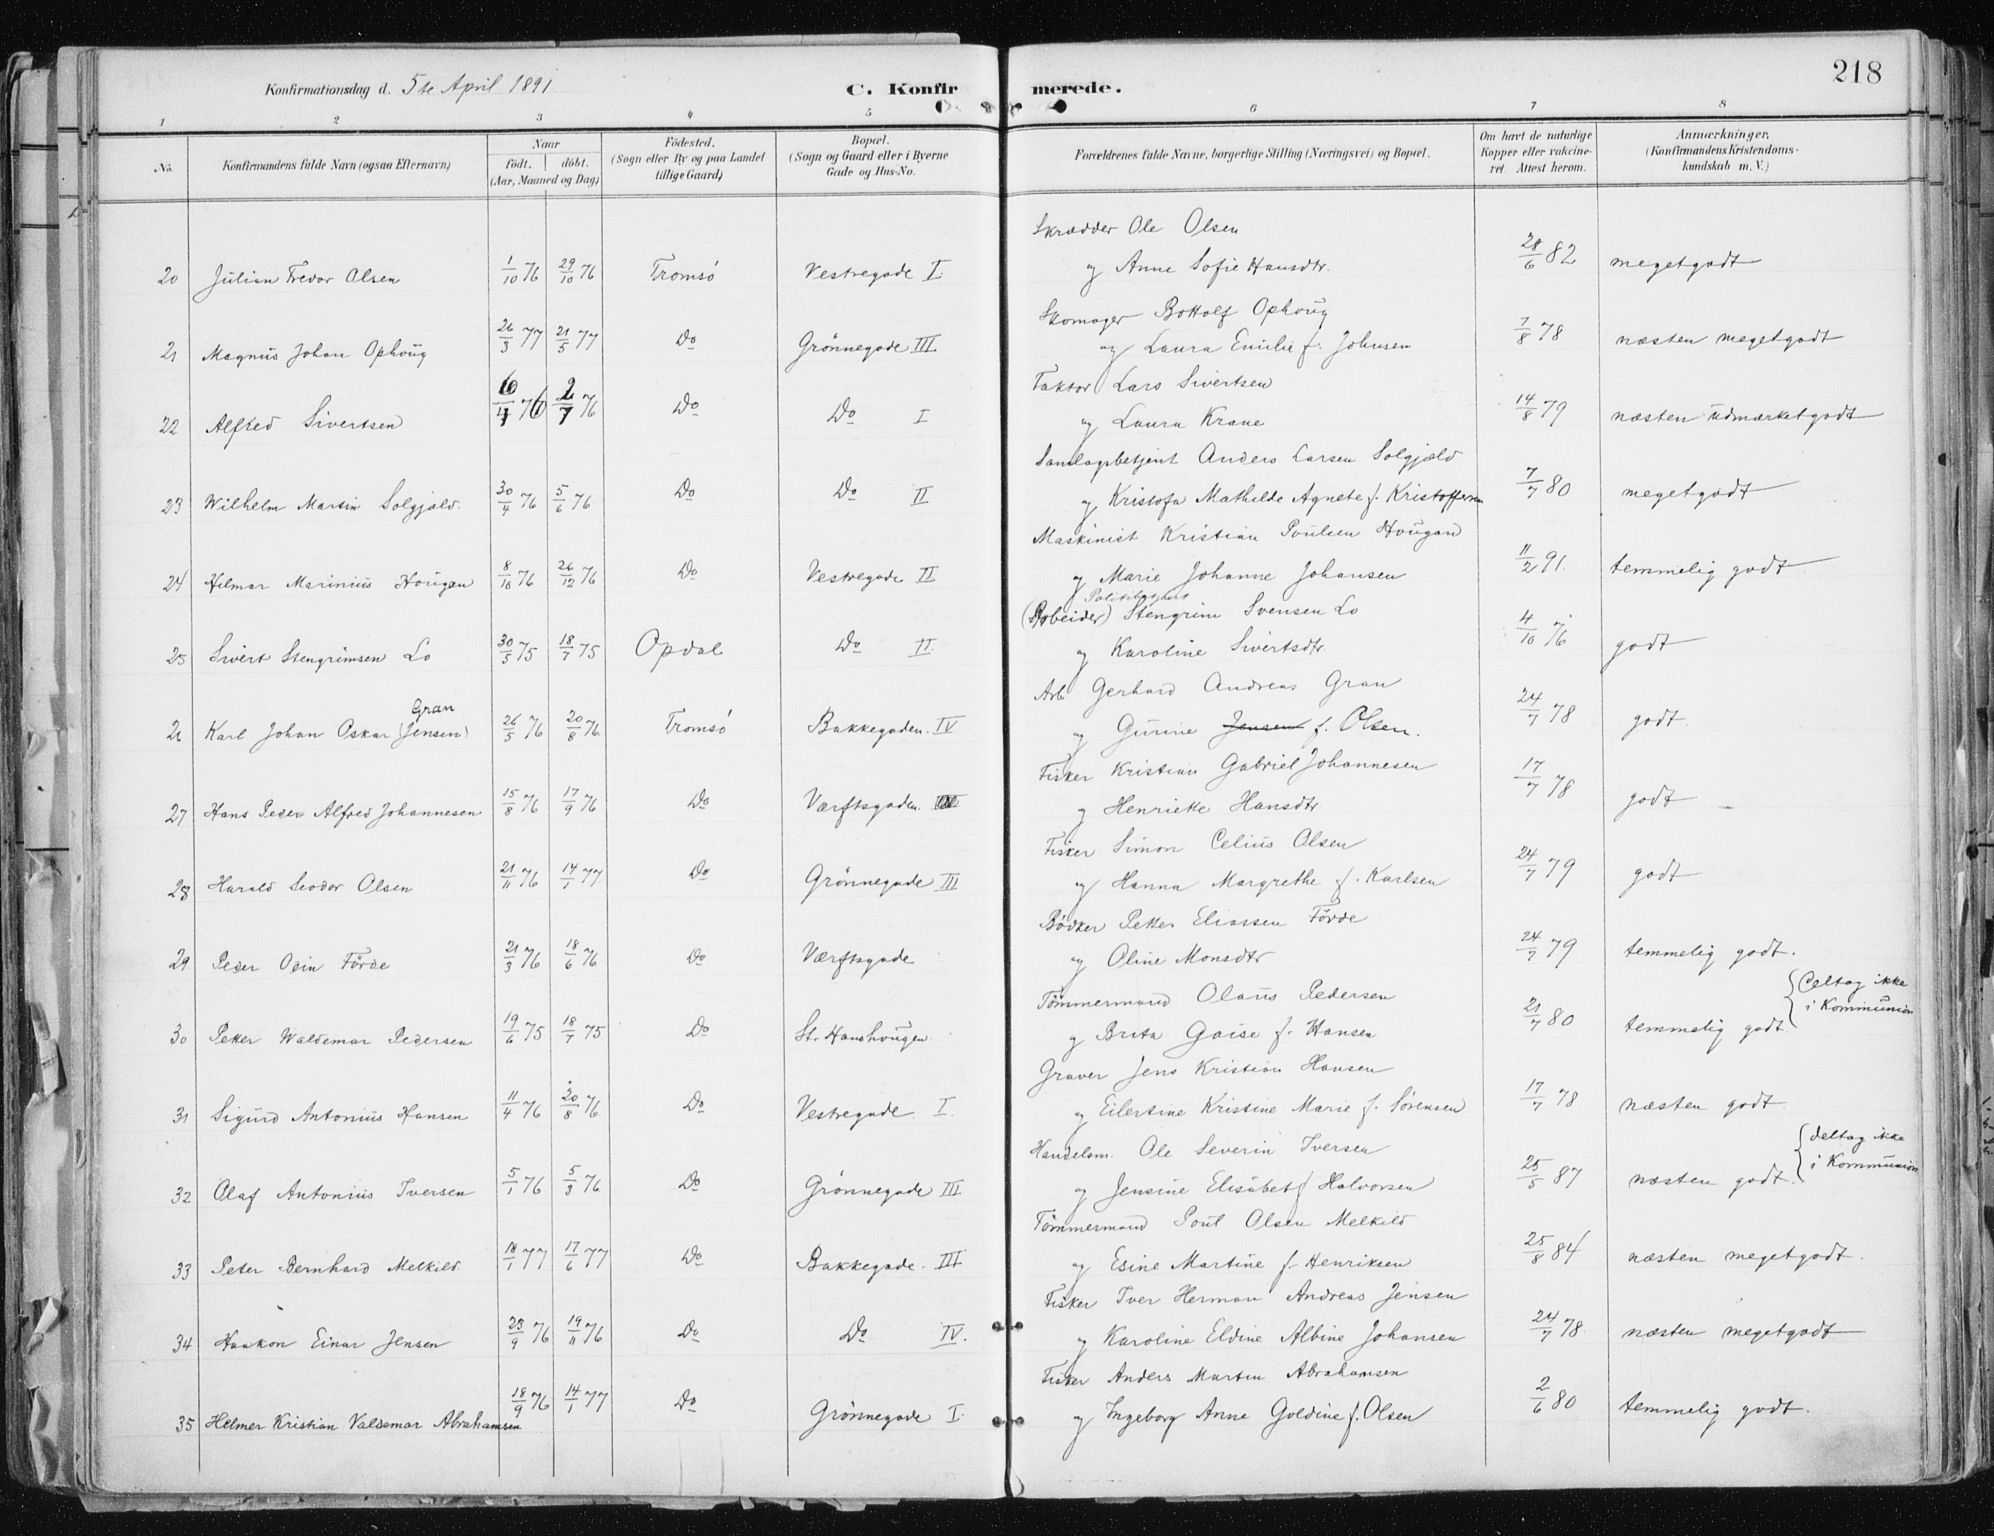 218
Konfirmationsdag d. 5te April 1891
C. Konfirmerede.
1 2 3 4 5 6 7 8
No.
Konfirmandens fulde Navn (ogsaa Efternavn)
Naar
født. | döbt.
(Aar, Maaned og Dag)
Födested.
(Sogn eller By og paa Landet
tillige Gaard)
Bopæl.
(Sogn og Gaard eller i Byerne
Gade og Hus-No.
Forældrenes fulde Navne, borgerlige Stilling (Næringsvei) og Bopæl.
Om havt de naturlige
Kopper eller vakcine-
ret. Attest herom.
Anmærkninger,
(Konfirmandens Kristendoms-
kundskab m. V.)
Skrædder Ole Olsen
20 Julian Fredor Olsen 1/10 76 29/10 76 Tromsö Vestregade I. og Anne Sofie Hansdtr. 28/6 82 megetgodt
Skomager Bottolf Ophoug
21 Magnus Johan Ophoug 26/3 77 21/5 77 Do Grönnegade III og Laura Emilie f. Johnsen 7/8 78 næsten megetgodt
Faktor Lars Sivertsen
22 Alfred Sivertsen 76 76 Do Do I og Laura Krane 14/8 79 næsten udmærketgodt
Samlagsbetjent Anders Larsen Solgjæld
23 Wilhelm Martin Solgjæld. 30/4 76 5/6 76 Do Do II og Kristofa Mathilde Agnete f. Kristoffersen 7/7 80 megetgodt
Maskinist Kristian Poulsen Hougan
24 Hilmar Marinius Hougen 8/10 76 26/12 76 Do Vestregade II og Marie Johanne Johansen 11/2 91. temmelig godt
Politibetjent
(Arbeider) Stengrim Svensen Lo
25 Sivert Stengrimsen Lo 30/5 75 18/7 75 Opdal Do II. og Karoline Sivertsdtr. 4/10 76 godt
Arb. Gerhard Andreas Gran
Gran
26 Karl Johan Oskar (Jensen) 26/5 76 20/8 76. Tromsö Bakkegaden. IV og Gurine Jensen f. Olsen. 24/7 78 godt.
Fisker Kristian Gabriel Johannesen
27 Hans Peder Alfred Johannesen 15/8 76 17/9 76 Do Værftsgaden og Henriette Hansdtr. 17/7 78 godt
Fisker Simon Celius Olsen
28 Harald Seodor Olsen 21/11 76 14/1 77. Do Grönnegade III og Hanna Margrethe f. Karlsen 24/7 79 godt
Bödker Petter Eliasen Förde
29 Peder Odin Förde 21/3 76 18/6 76 Do Værftsgade og Oline Monsdtr 24/7 79 temmelig godt.
Tömmermand Olaus Pedersen
30 Petter Waldemar Pedersen 19/6 75 18/7 75 Do St. Hanshaugen. og Brita Gaise f. Hansen 21/7 80 temmelig godt. {Deltog ikke
i Kommunion
Graver Jens Kristian Hansen
31 Sigurd Antonius Hansen 11/4 76 20/8 76 Do Vestregade I. og Eilertine Kristine Marie f. Sørensen 17/7 78 næsten godt.
Handelsm. Ole Severin Iversen
32 Olaf Antonius Iversen 5/1 76 5/3 76 Do Grönnegade III og Jensine Elisabet f Halvorsen 25/5 87 næsten godt. {deltog ikke
i Kommunion
Tömmermand Poul Olsen Melkild
33 Peter Bernhard Melkild. 18/1 77 17/6 77 Do Bakkegade. III og Esine Martine f. Henriksen 25/8 84 næsten megetgodt.
Fisker Iver Herman Andreas Jensen
34 Haakon Einar Jensen 23/9 76 19/11 76 Do Do IV. og Karoline Eldine Albine Johansen 24/7 78. næsten megetgodt
Fisker Anders Martin Abrahamsen
35 Helmer Kristian Valdemar Abrahamsen 18/9 76 14/1 77 Do Grönnegade I. og Ingeborg Anne Goldine f. Olsen 2/6 80 temmelig godt.